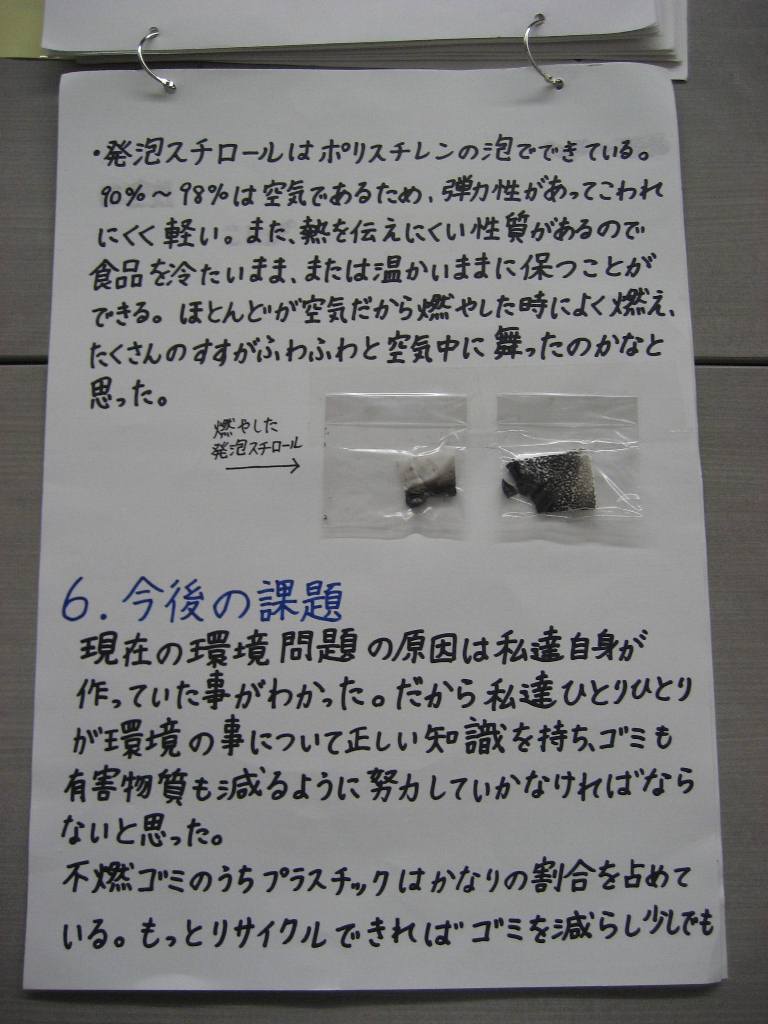 ・発泡スチロールはポリスチレンの泡でできている。
90%～98%は空気であるため、弾力性があってこわれ
にくく軽い。また、熱を伝えにくい性質があるので
食品を冷たいまま、または温かいままに保つことが
できる。ほとんどが空気だから燃やした時によく燃え、
たくさんのすすがふわふわと空気中に舞ったのかなと
思った。
燃やした
発泡スチロール
6.今後の課題
現在の環境問題の原因は私達自身が
作っていた事がわかった。だから私達ひとりひとり
が環境の事について正しい知識を持ち、ゴミも
有害物質も減るように努力していかなければなら
ないと思った。
不燃ゴミのうちプラスチックはかなりの割合を占めて
いる。もっとリサイクルできればゴミを減らし少しでも